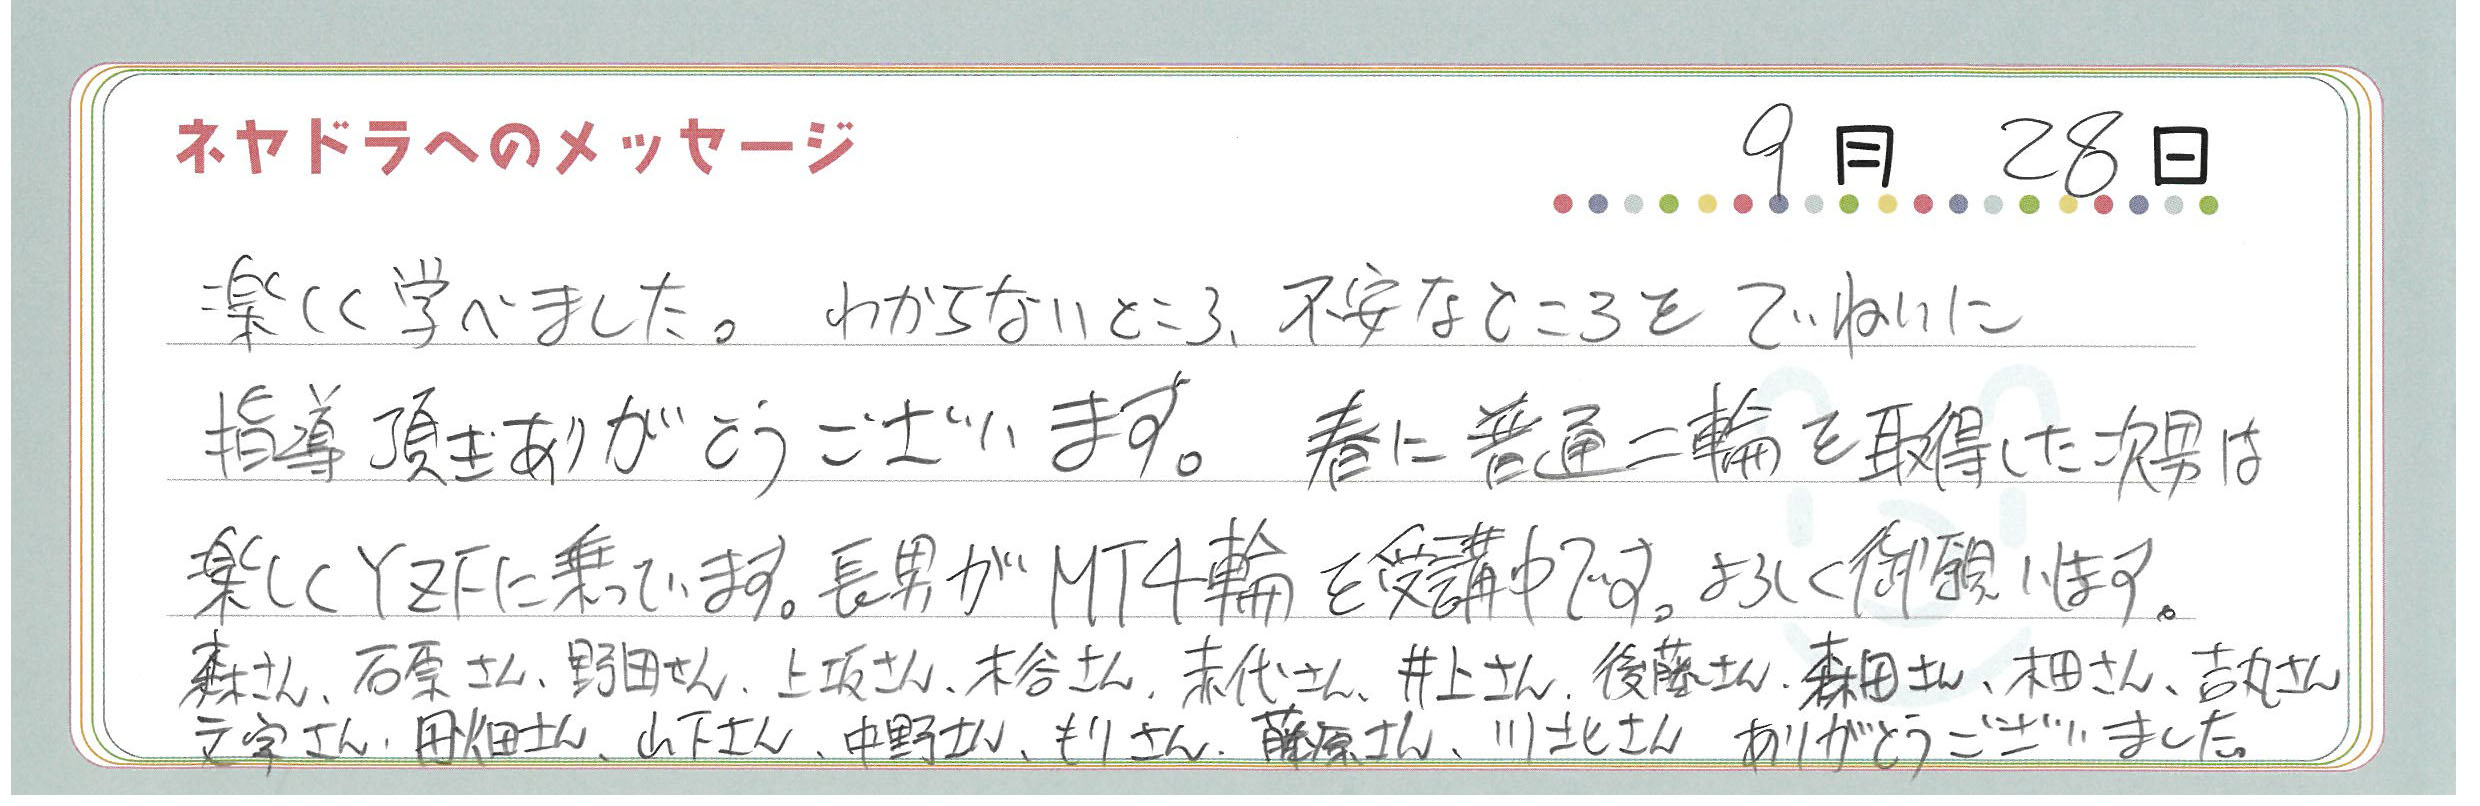 ネヤドラへのメッセージ
9月 28日
楽しく学べました。 わからないところ、不安なところを ていねいに
指導頂きありがとうございます。 春に普通二輪を取得した次男は
楽しくYZFに乗っています。長男がMT4輪を受講中です。よろしく御願いします。
森さん、石原さん、野田さん、上坂さん、木谷さん、末代さん、井上さん、後藤さん、森田さん、本田さん、吉丸さん
文字さん、田畑さん、山下さん、中野さん、もりさん、藤原さん、川北さん ありがとうございました。